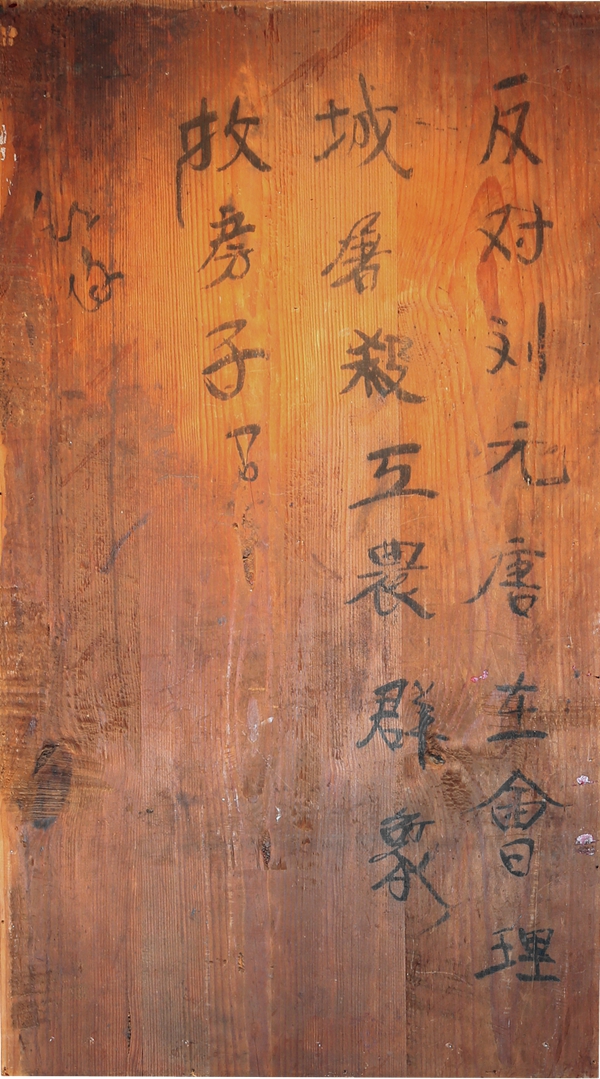 反对刘元唐在會理
城屠殺工農群衆
房子